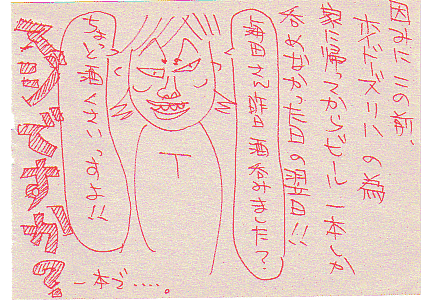 因みにこの前、
リハの為
家に帰ってからビール一本しか
呑めなかった日の翌日!!
田さん昨日酒呑みました?
ちょっと酒くさいっすよ!!
マジですか?
一本で.....。